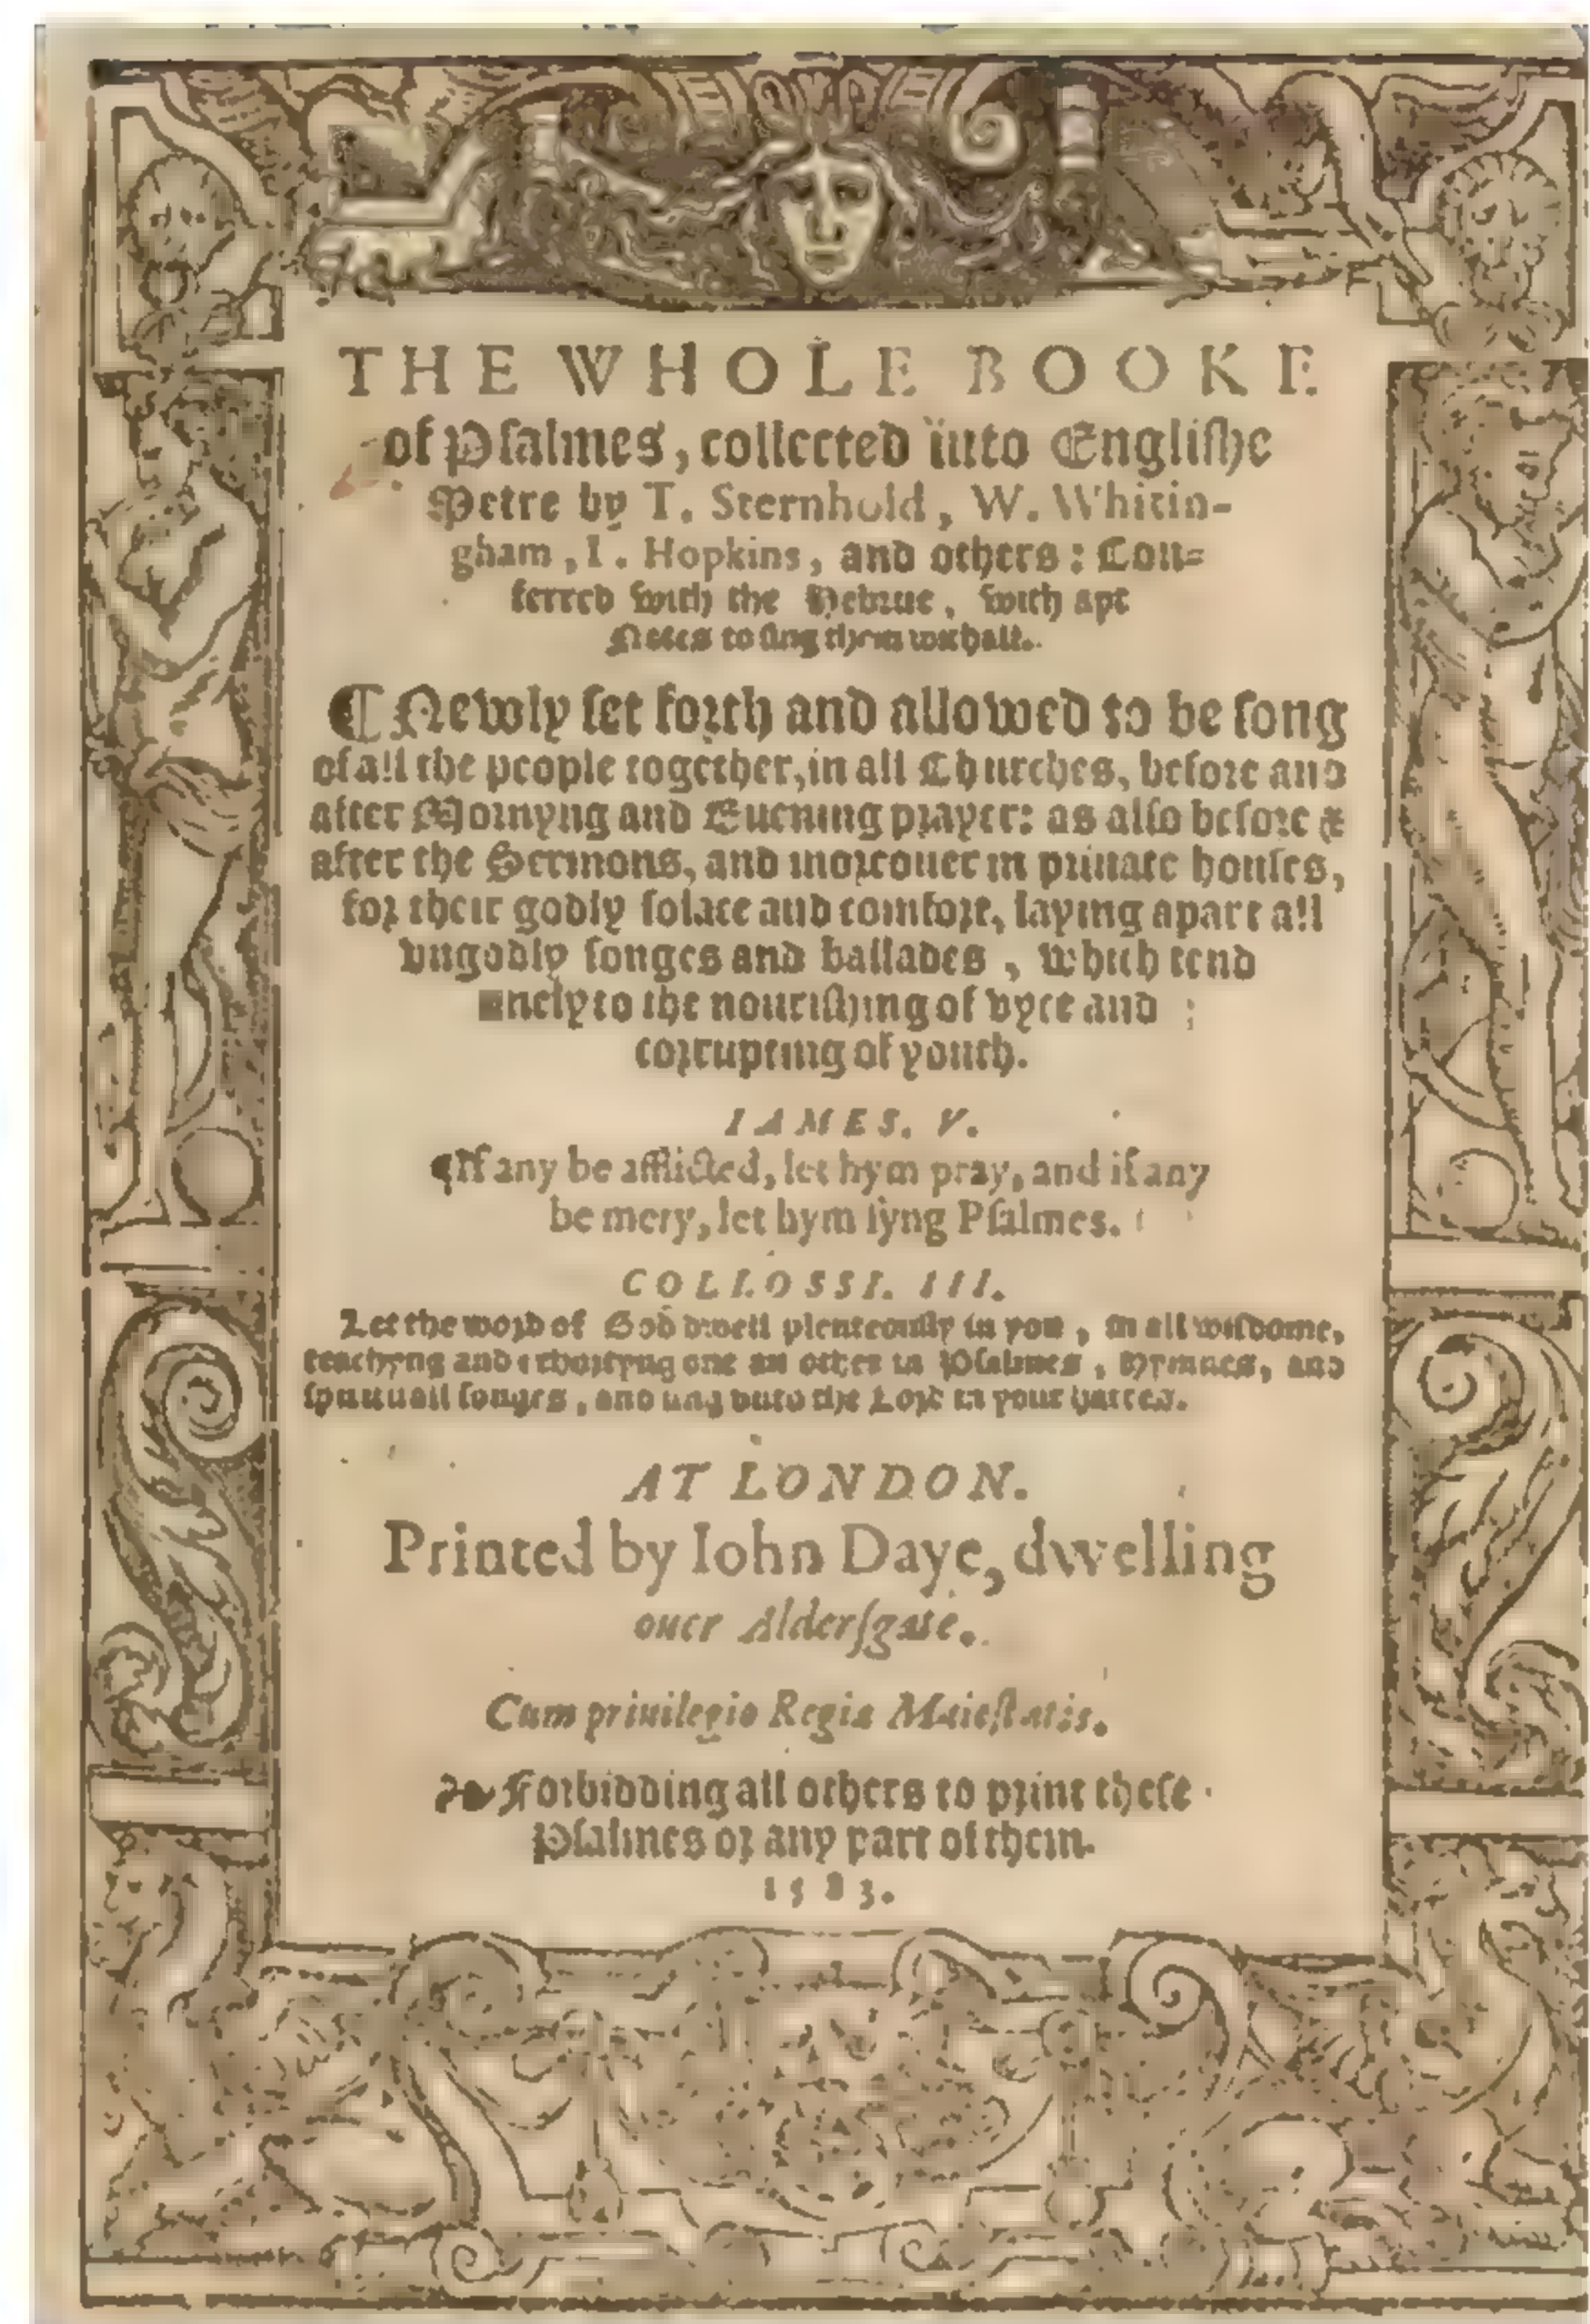 THE WHOLE BOOKE
of Psalmes, collected into Englishe
Metre by T. Sternhold, W. Whitin-
gham, I. Hopkins, and others: Con-
ferred with the Hebrue, with apt
Notes to sing them withall.
¶ Newly set forth and allowed to be song
of all the people together, in all Churches, before and
after Mornyng and Euening prayer: as also before &
after the Sermons, and moreouer in priuate houses,
for their godly solace and comfort, laying apart all
vngodly songes and ballades, which tend
onely to the nourishing of vyce and
corrupting of youth.
IAMES. V.
¶If any be afflicted, let hym pray, and if any
be mery, let hym syng Psalmes.
COLLOSSI. III.
Let the word of God dwell plenteously in you, in all wisdome,
teachyng and exhortyng one an other in Psalmes, Hymnes, and
spirituall songes, and sing vnto the Lord in your hartes.
AT LONDON.
Printed by Iohn Daye, dwelling
ouer Aldersgate.
Cum priuilegio Regiæ Maiestatis.
❧ Forbidding all others to print these
Psalmes or any part of them.
1583.